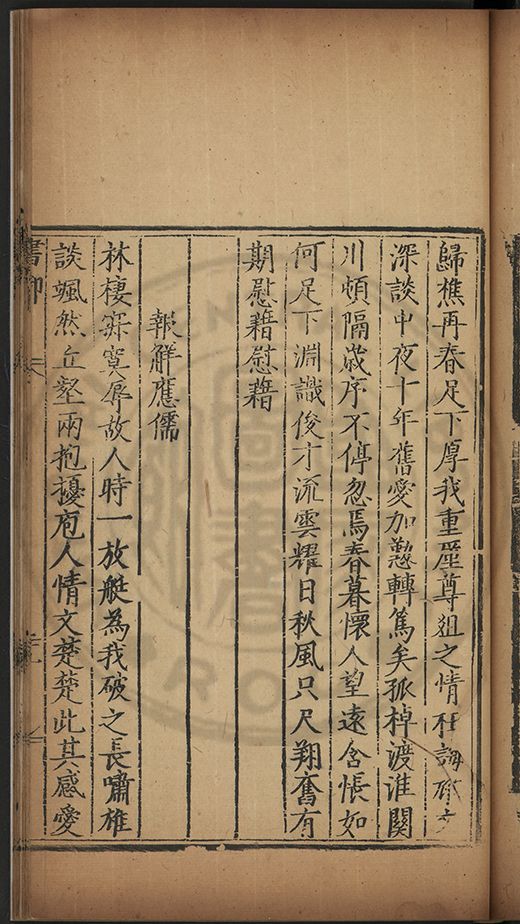 歸樵再春足下厚我重壘尊俎之情枉
深談中夜十年舊愛加懃轉篤矣孤棹渡淮關
川頓隔歲序不停忽焉春暮懷人望遠含悵如
何足下淵識俊才流雲耀日秋風只尺翔奮有
期慰藉慰藉
報鮮應儒
林棲寂寞辱故人時一放艇為我破之長嘯雄
談颯然丘壑兩抱擾庖人情文楚楚此其感愛